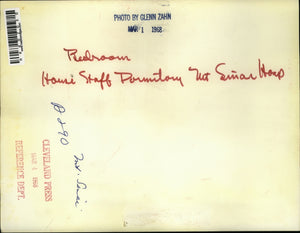 PHOTO BY GLENN ZAHN
MAR 1 1968
Bedroom
House Staff Dormitory Mt Sinai Hosp
D290
Mt. Sinai
CLEVELAND PRESS
MAR 4 1968
REFERENCE DEPT.